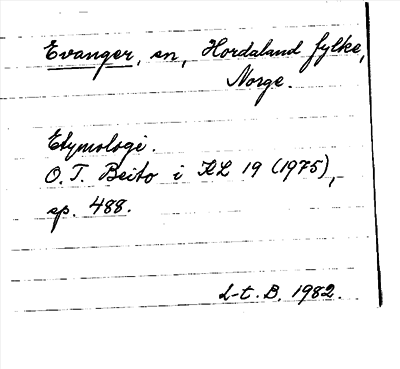 Evanger, sn, Hordaland fylke,
Norge.
Etymologi.
O. T. Beito i KL 19 (1975),
sp. 488.
L-t. B. 1982.